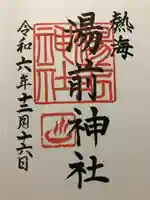 熱海
湯前神社
令和六年十二月十六日
湯前
神社